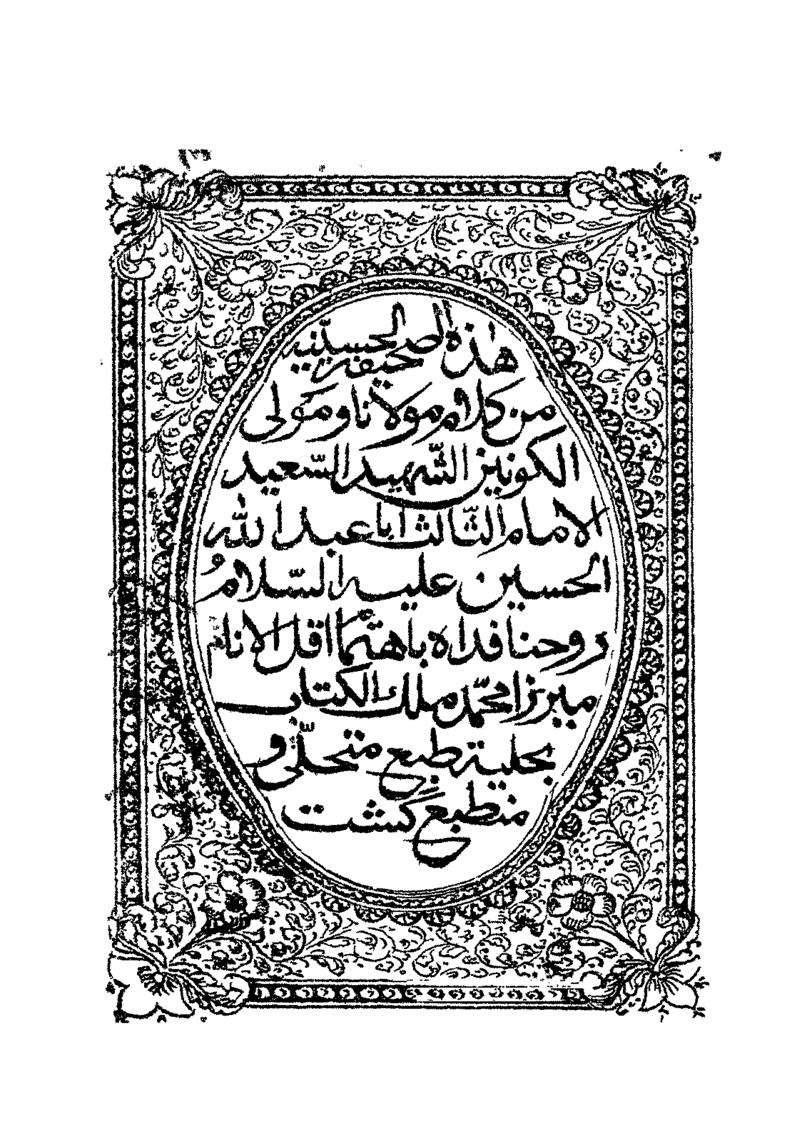 هذه الصحيفة الحسينيه
من كلام مولانا و مولى
الكونين الشّهيد السّعيد
الامام الثّالث ابا عبد اللّه
الحسين عليه السّلامُ
روحنا فداه باهتمام اقل الانام
ميرزا محمّد ملك الكتاب
بحلية طبع متحلّى و
منطبع گشت